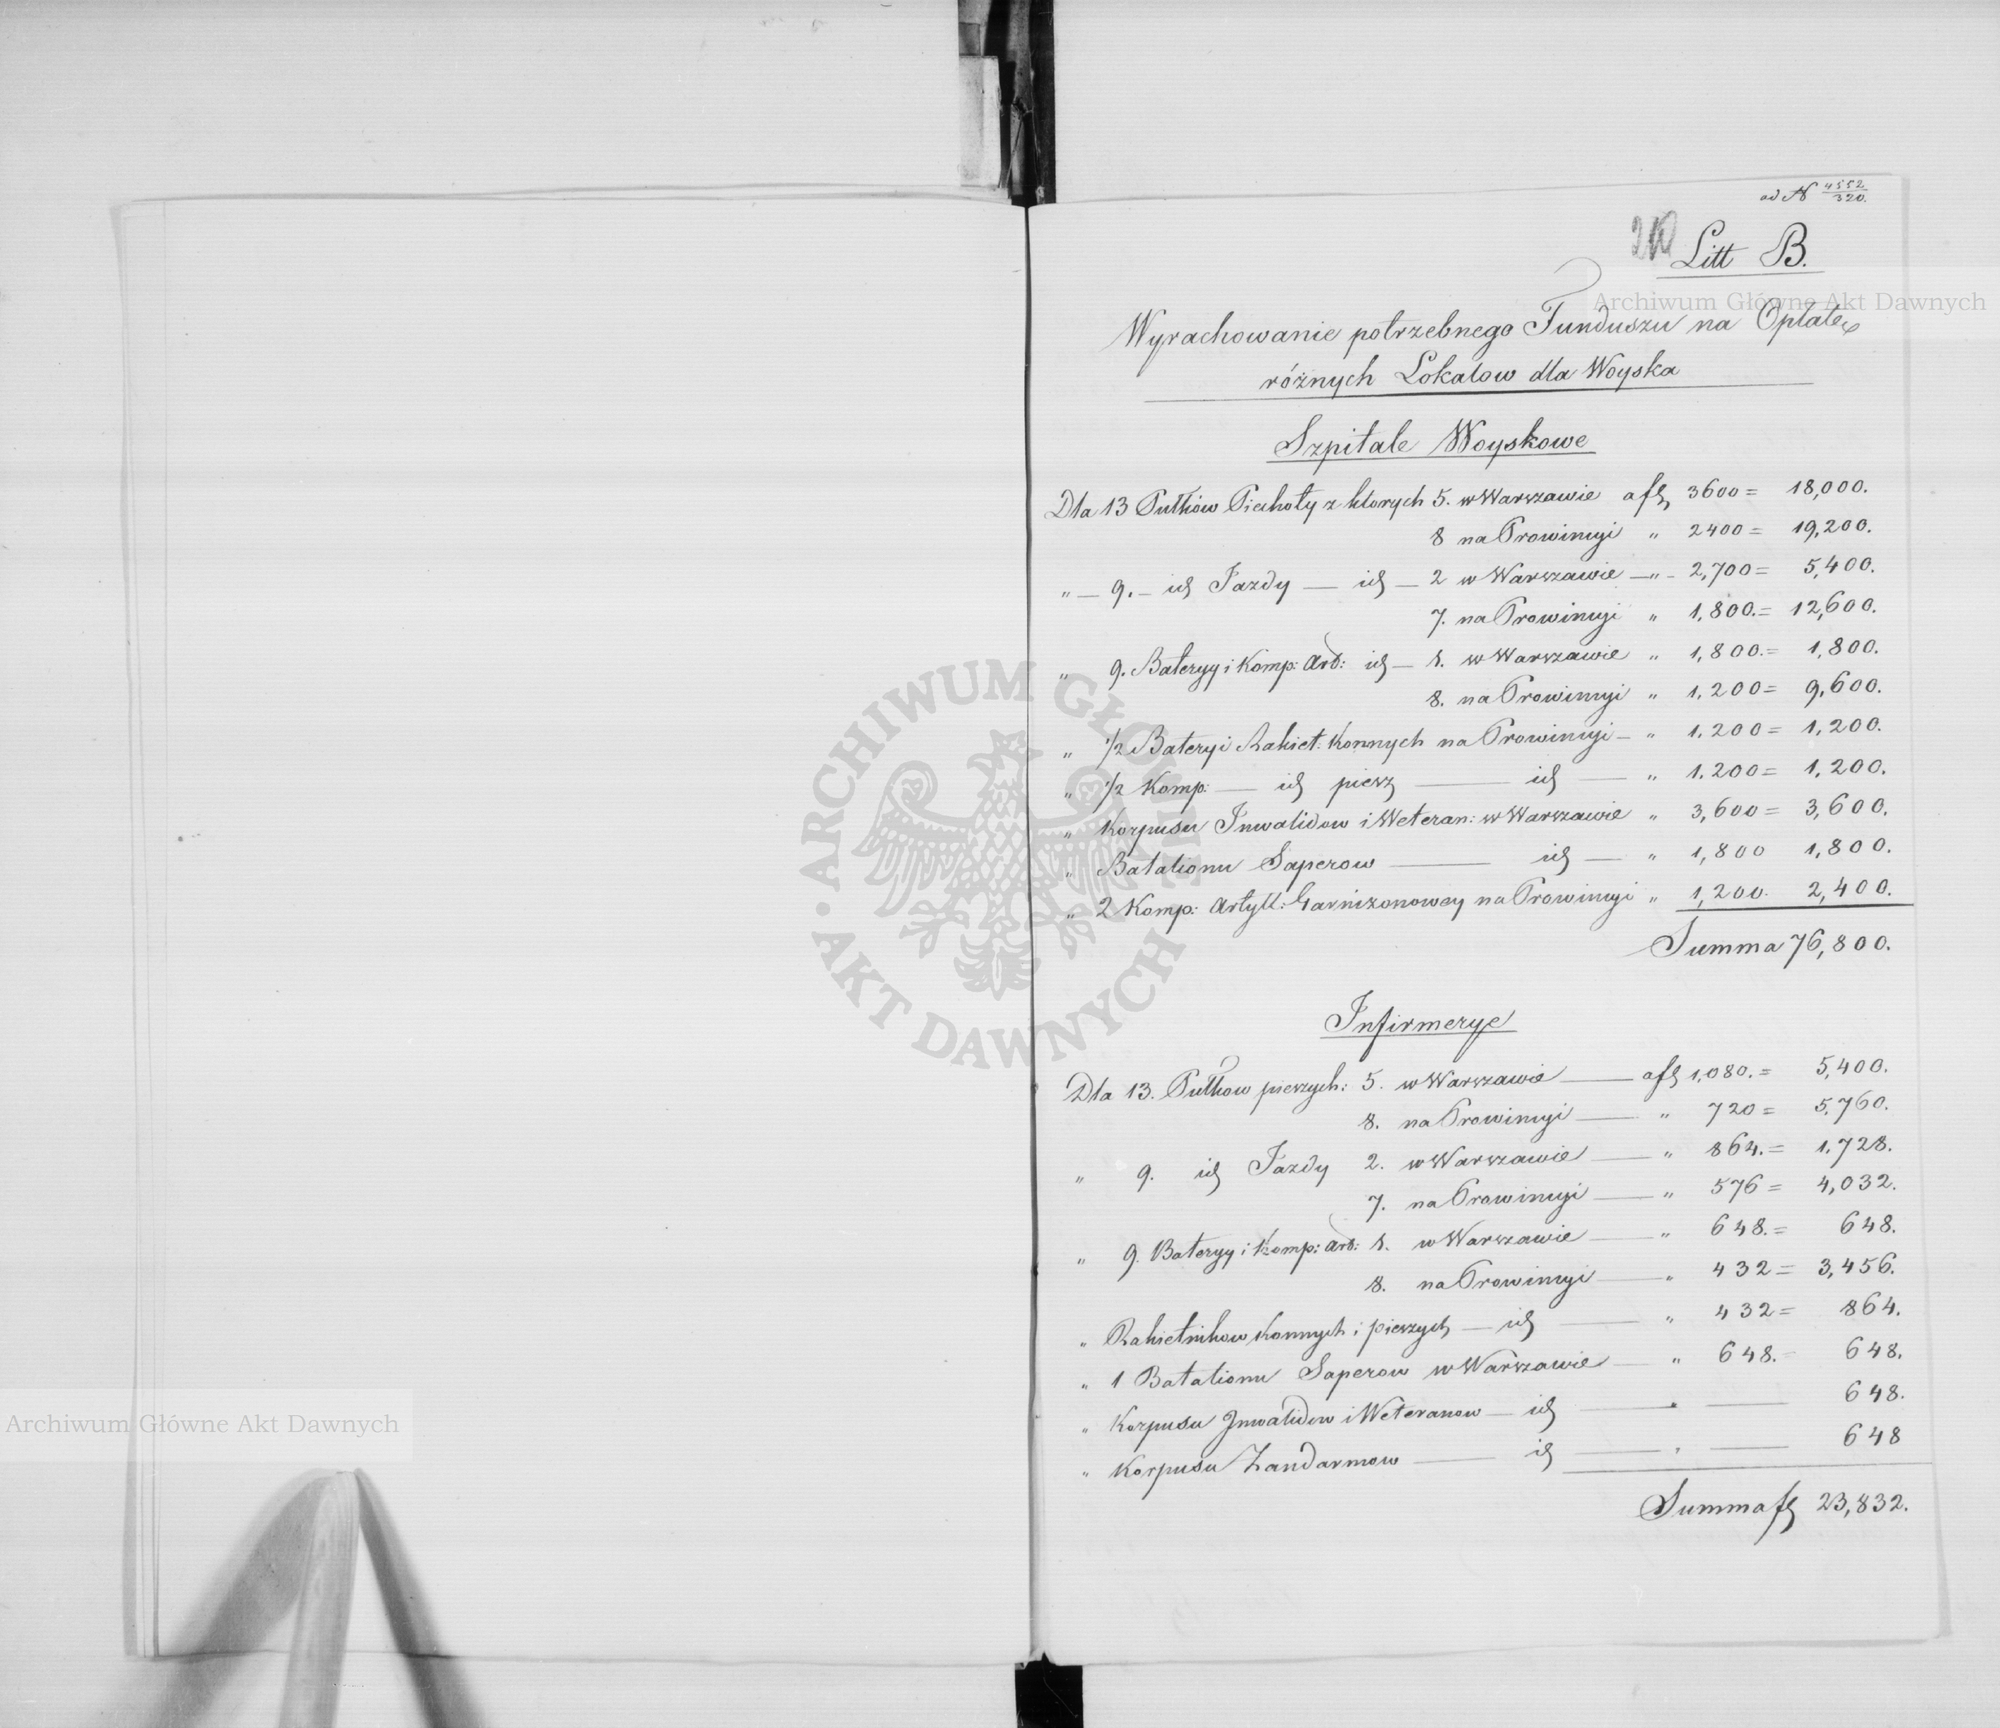 ad N 4552/320.
Litt B.
Archiwum Główne Akt Dawnych
Wyrachowanie potrzebnego Funduszu na Opłatę
różnych Lokalow dla Woyska
Szpitale Woyskowe
Dla 13 Pułków Piechoty z ktorych 5. w Warszawie a f 3600 = 18,000.
8 na Prowincyi " 2400 = 19,200.
" — 9. — id Jazdy — id — 2 w Warszawie — " — 2,700 = 5,400.
7. na Prowincyi " 1,800. = 12,600.
" 9. Bateryy i Komp: Art: id — 1. w Warszawie " 1,800. = 1,800.
8. na Prowincyi " 1,200 = 9,600.
" 1/2 Bateryi Rakiet: Konnych na Prowincyi — " 1,200 = 1,200.
" 1/2 Komp: — id piesz — id — " 1,200 = 1,200.
" Korpusu Inwalidow i Weteran: w Warszawie " 3,600 = 3,600.
" Batalionu Saperow — id — " 1,800 1,800.
" 2 Komp: Artyll: Garnizonowey na Prowincyi " 1,200. 2,400.
Summa 76,800.
Infirmerye
Dla 13. Pułkow pieszych: 5. w Warszawie — a f 1,080. = 5,400.
8. na Prowincyi — " 720 = 5,760.
" 9. id Jazdy 2. w Warszawie — " 864. = 1,728.
7. na Prowincyi — " 576 = 4,032.
" 9. Bateryy i Komp: Art: 1. w Warszawie — " 648. = 648.
8. na Prowincyi — " 432 = 3,456.
" Rakietnikow Konnych i pieszych — id — " 432 = 864.
" 1 Batalionu Saperow w Warszawie — " 648. = 648.
" Korpusu Inwalidow i Weteranow — id — " — 648.
" Korpusu Żandarmow — id — " — 648
Summa f 23,832.
ARCHIWUM GŁÓWNE AKT DAWNYCH
Archiwum Główne Akt Dawnych